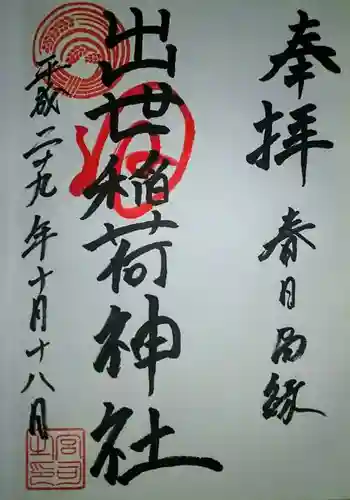 奉拝 春日局縁
出世稲荷神社
平成二十九年十月十八日
宮司之印